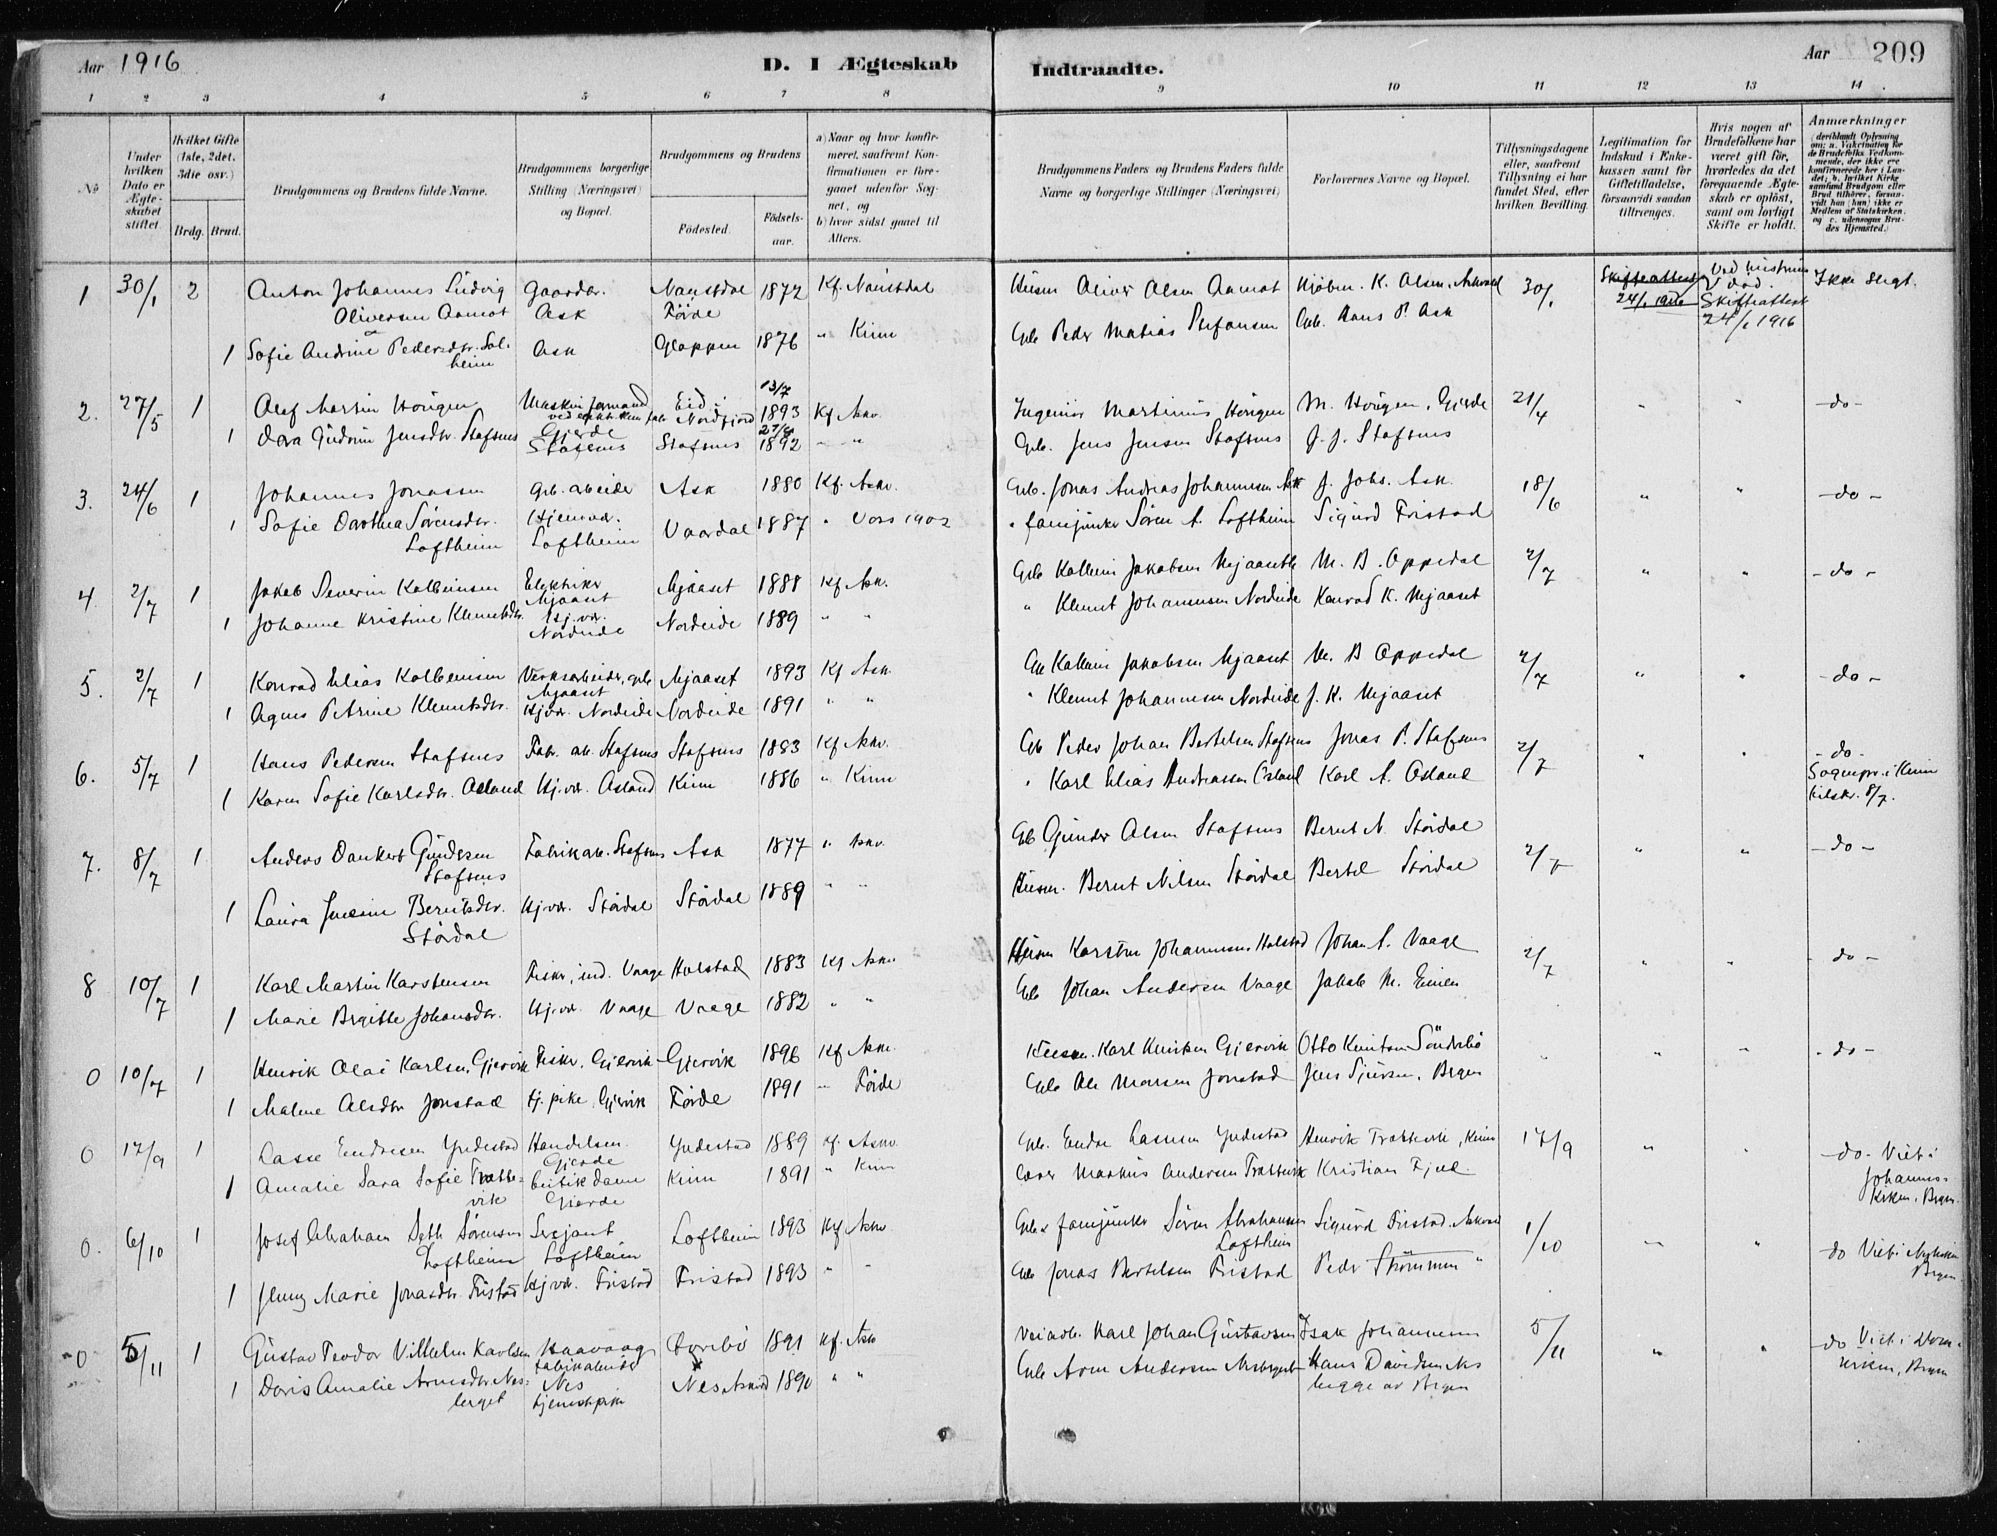 Aar 1916
D. I Ægteskab Indtraadte.
Aar 209
1 2 3 4 5 6 7 8 9 10 11 12 13 14
No
Under hvilken Dato er Ægteskabet stiftet
Hvilket Gifte (1ste, 2det, 3die osv.)
Brdg. Brud.
Brudgommens og Brudens fulde Navne.
Brudgommens borgerlige Stilling (Næringsvei) og Bopæl.
Brudgommens og Brudens
Fødested. Fødselsaar.
a) Naar og hvor konfirmeret, saafremt Konfirmationen er foregaaet udenfor Sognet, og
b) hvor sidst gaaet til Alters.
Brudgommens Faders og Brudens Faders fulde Navne og borgerlige Stillinger (Næringsvei)
Forlovernes Navne og Bopæl.
Tillysningsdagene eller, saafremt Tillysning ei har fundet Sted, efter hvilken Bevilling.
Legitimation for Indskud i Enkekassen samt for Giftetilladelse, forsaavidt saadan tiltrænges.
Hvis nogen af Brudefolkene har været gift før, hvorledes da det foregaaende Ægteskab er opløst, samt om lovligt Skifte er holdt.
Anmærkninger
1 30/1 2 Anton Johannes Ludvig Gaardbr. Naustdal 1872 Kf. Naustdal Husm Oliver Olsen Aamot K. Olsen, Askvold 30/1 Skifteattest Ved hustrus Ikke slegt.
Oliversen Aamot Ask Førde 24/1 1916 død. Skifteattest
1 Sofie Andrine Pedersdtr. Sol- Ask Gloppen 1876 " Kinn Gbr. Peder Matias Stefansen Gbr. Hans P. Ask 24/1 1916
heim
2. 27/5 1 Olaf Martin Hougen Maskinformand Eid i 13/7 1893 Kf Askv. Ingeniør Martinus Hougen M. Hougen, Gjerde 21/4 " " -do-
Nordfjord
1 Dora Gudrun Jensdtr. Stafsnes Gjerde Stafsnes Stafsnes 1892 " " Gbr. Jens Jensen Stafsnes J. J. Stafsnes
3. 24/6 1 Johannes Jonassen Grb. arbeider Ask 1880 Kf. Askv. Gbr. Jonas Andreas Johannesen Ask J. Johs. Ask 18/6 " " -do-
1 Sofie Dorthea Sørensdtr. Hjemvær. Vaardal 1887 " Voss 1902 " fanejunker Søren A. Loftheim Sigurd Fristad
Loftheim Loftheim
4. 2/7 1 Jakob Severin Kolbeinsen Elektriker Mjaaset 1888 Kf Ask. Gbr Kolbein Jakobsen Mjaaset M. B. Oppedal 2/7 " " -do-
Mjaaset
1 Johanne Kristine Klemetsdtr. Hj.vær. Nordeide 1889 " " " Klemet Johannesen Nordeide Konrad K. Mjaaset
Nordeide
5. 2/7 1 Konrad Elias Kolbeinsen Verksarbeider, Mjaaset 1893 Kf Ask. Gbr Kolbein Jakobsen Mjaaset M. B Oppedal 2/7 " " -do-
Mjaaset
1 Agnes Petrine Klemetsdtr. Hj.vær. Nordeide Nordeide 1891 " " " Klemet Johannesen Nordeide J. K. Mjaaset
6. 5/7 1 Hans Pedersen Stafsnes Fabr. arb. Stafsnes Stafsnes 1883 Kf Askv. Gbr Peder Johan Bertelsen Stafsnes Jonas P. Stafsnes 2/7 " " -do-
1 Karen Sofie Karlsdtr. Osland Hj.vær. Osland Kinn 1886 " Kinn " Karl Elias Andreassen Osland Karl A. Osland Sognepr. i Kinn
tilskr. 8/7.
7. 8/7 1 Anders Dankert Gundersen Fabrikarb. Stafsnes Ask 1877 " Askv. Gbr Gunder Olsen Stafsnes Bernt N. Stordal 2/7 " " -do-
Stafsnes
1 Laura Berntsdtr. Hj.vær. Stordal Stordal 1889 " " Husm. Bernt Nilsen Stordal Bertel Stordal
Stordal
8 10/7 1 Karl Martin Karstensen Fisker, ind. Vaage Holstad 1883 Kf Askv. Husm Karsten Johannesen Holstad Johan A. Vaage 2/7 " " -do-
1 Marie Brgitte Johansdtr. Hj.vær. Vaage Vaage 1882 " " Gbr Johan Andersen Vaage Jakob M.
0 10/7 1 Henrik Olai Karlsen Gjervik Fisker, Gjervik Gjervik 1896 Kf Askv. Husm. Karl Gjervik Otto Knutsen Sønderbø " " " -do-
1 Malene Olsdtr Jonstad Hj.pike, Gjervik Førde 1891 " Førde Gbr Ole Monsen Jonstad Jens Sjursen, Bergen
0 17/9 1 Lasse Endresen Yndestad Handelsm. Yndestad 1889 Kf. Askv. Gbr. Endre Lassesen Yndestad Henrik Trættevik, Kinn 17/9 " " -do- Viet i
Gjerde Johannes-
1 Amalie Sara Sofie Trætte- butikdame Kinn 1891 " Kinn Markus Andersen Trættevik Kristian Fjed kirken, Bergen.
vik Gjerde
0. 6/10 1 Josef Abraham Seth Sørensen Serjant Loftheim 1893 Kf Askv. Gbr & fanejunker Søren Abrahamsen Sigurd Fristad, Askvold 1/10 " " do Viet i Nykirken
Loftheim Loftheim Loftheim Bergen
1 Jenny Marie Jonasdtr. Fristad Hj.vær. Fristad Fristad 1893 " " Gbr Jonas Bertelsen Fristad Peder Strømmen "
0 5/11 1 Gustav Teodor Vilhelm Karlsen Haavaag Korsbø 1891 Kf. Ask Veiarb. Karl Johan Gustavsen Isak Johannesen 5/11 " " do Viet i Dom-
fabrikarbeider kirken, Bergen
1 Doris Amalie Arnesdtr. Nes- Nes Nes Askvold 1890 " " Gbr Arne Andersen Nesberget Hans Davidsen Nes
berget tjenestepike begge av Bergen